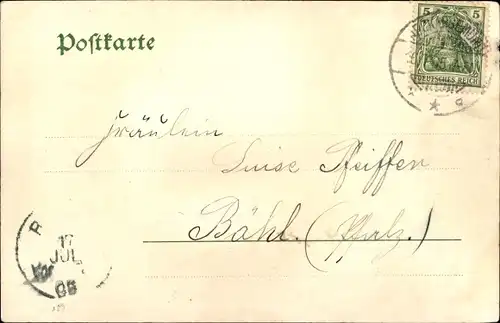 Postkarte
5 5
DEUTSCHES REICH
Fräulein
Luise Pfeiffer
Böhl. (Pfalz.)
17
JUL